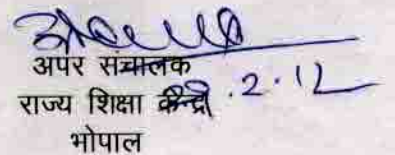 अपर संचालक
राज्य शिक्षा केन्द्र .2.12
भोपाल